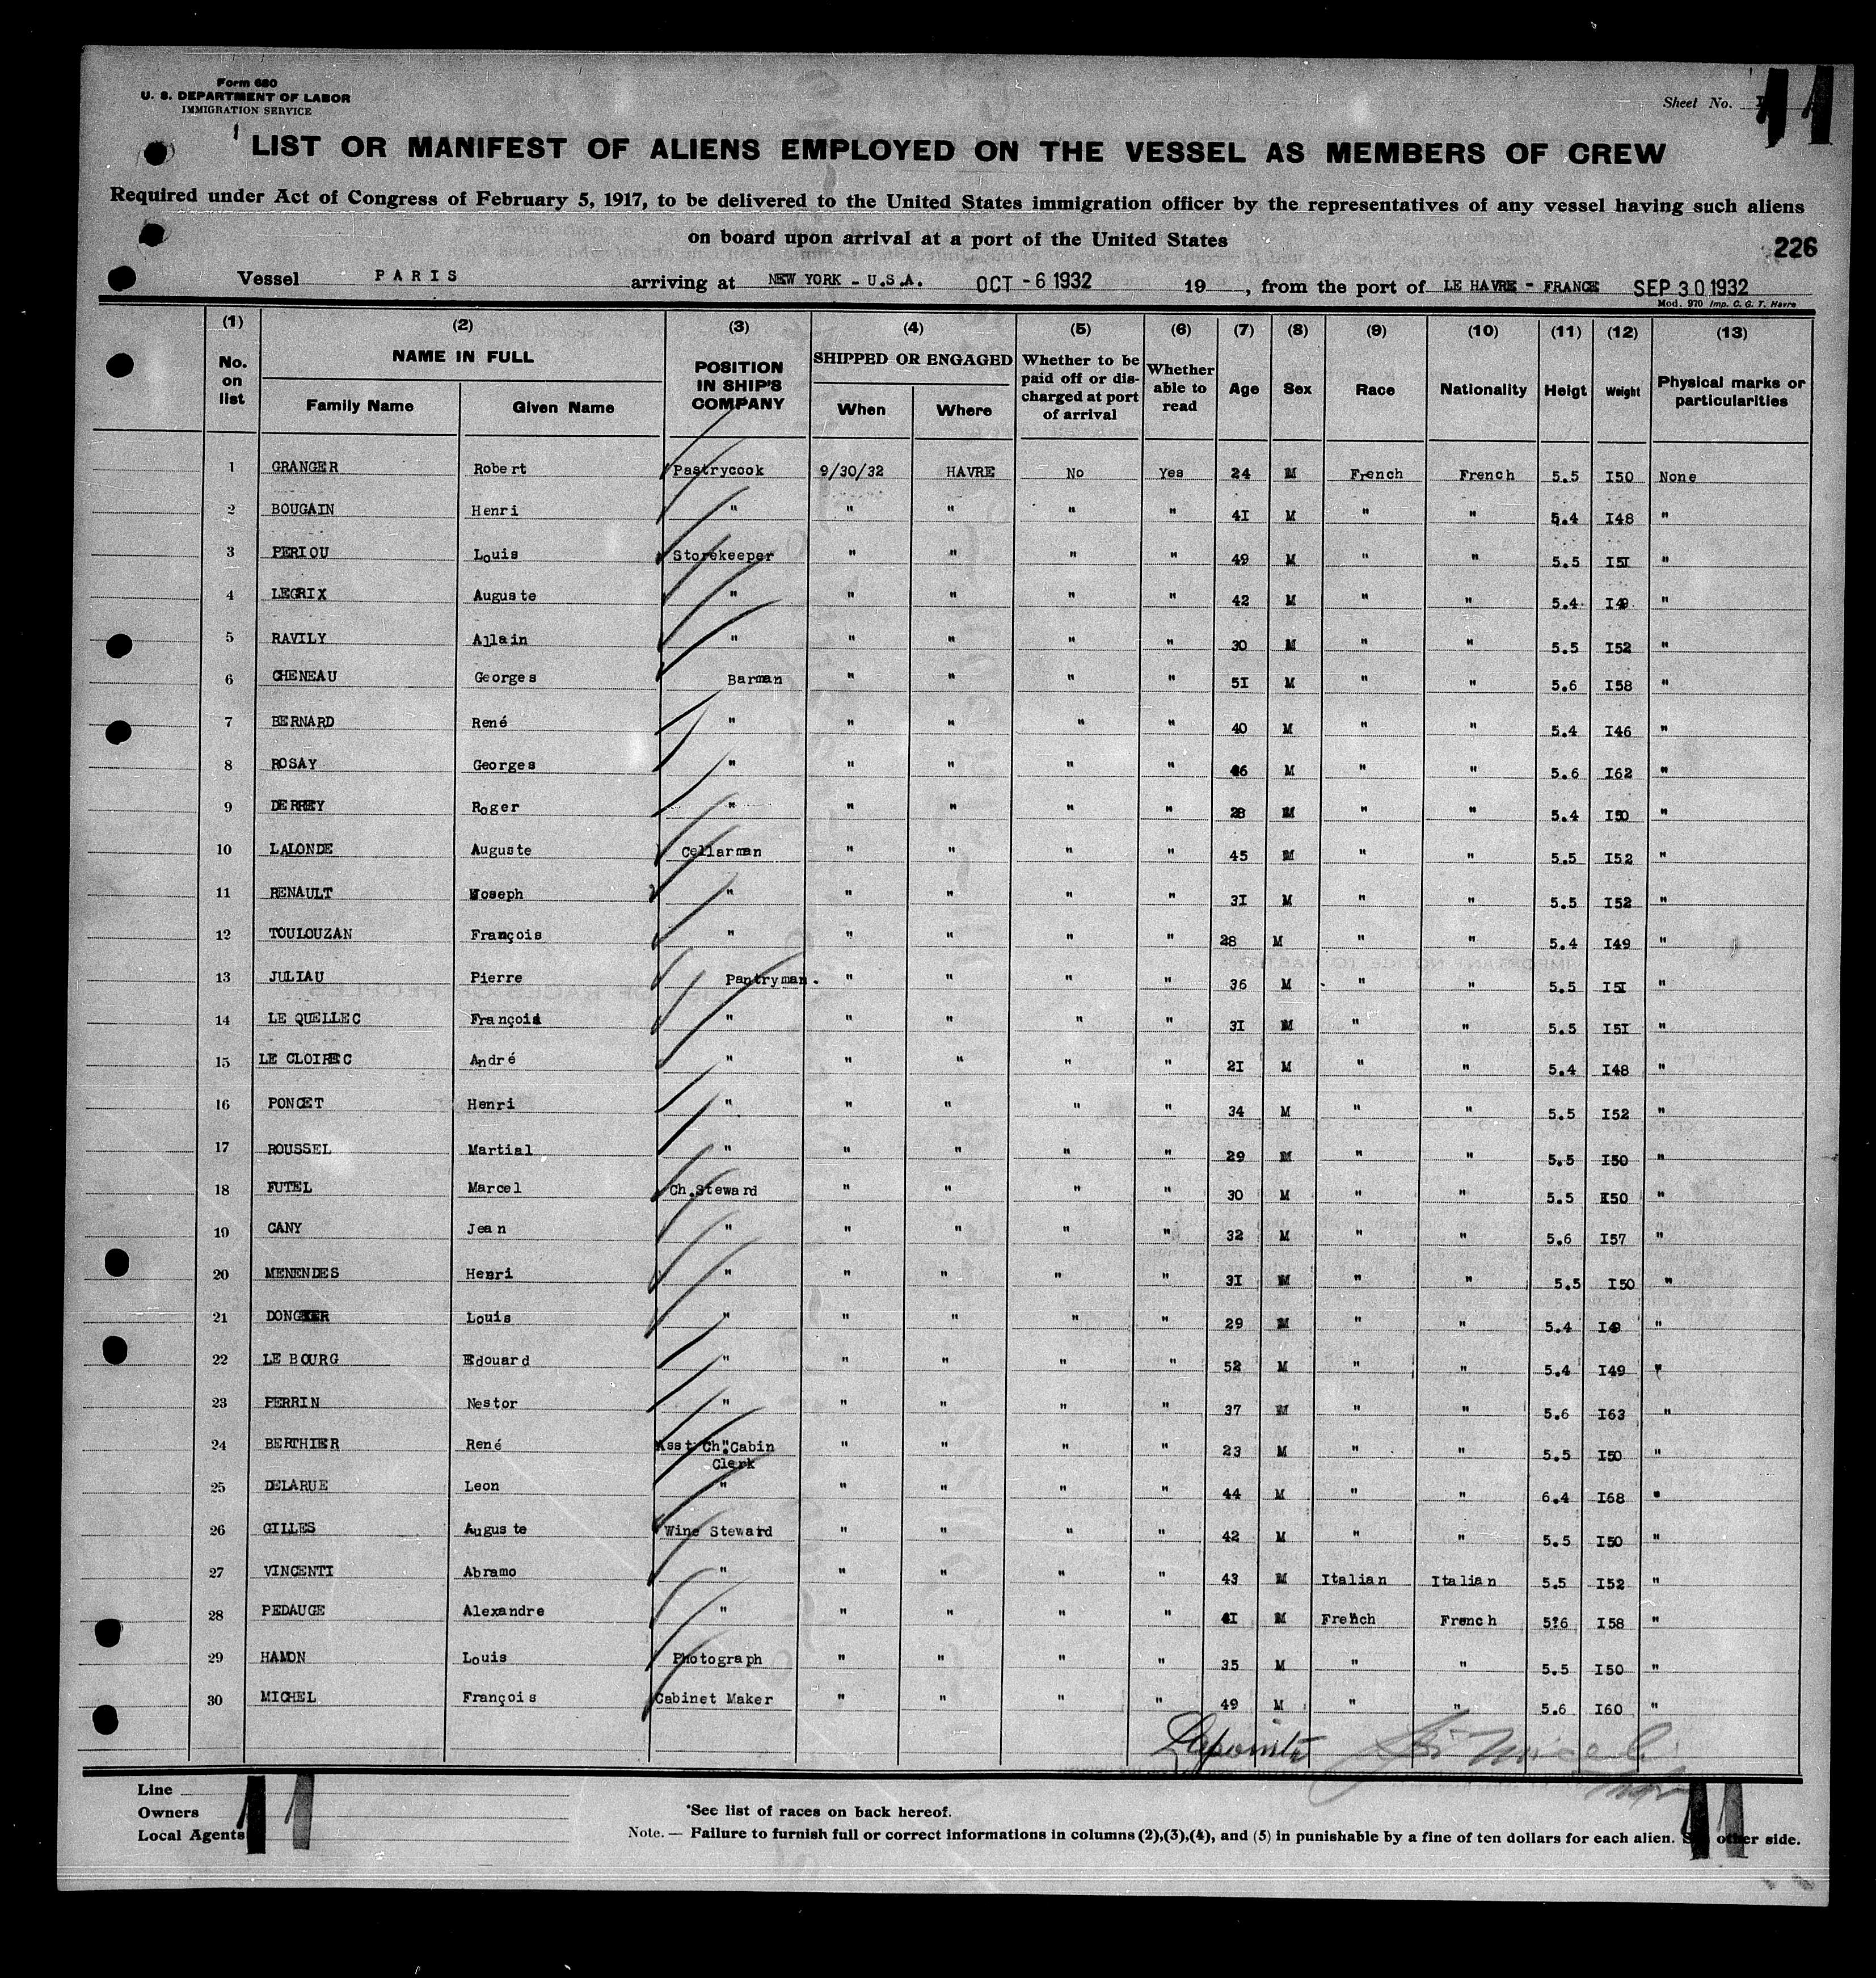 Form 680
U. S. DEPARTMENT OF LABOR
IMMIGRATION SERVICE
Sheet No.
LIST OR MANIFEST OF ALIENS EMPLOYED ON THE VESSEL AS MEMBERS OF CREW
Required under Act of Congress of February 5, 1917, to be delivered to the United States immigration officer by the representatives of any vessel having such aliens
on board upon arrival at a port of the United States
226
Vessel PARIS arriving at NEW YORK - U.S.A. OCT -6 1932 19 , from the port of LE HAVRE - FRANCE SEP 30 1932
Mod. 970 Imp. C. G. T. Havre
(1) (2) (3) (4) (5) (6) (7) (8) (9) (10) (11) (12) (13)
No. on list NAME IN FULL Family Name Given Name POSITION IN SHIP'S COMPANY SHIPPED OR ENGAGED When Where Whether to be paid off or discharged at port of arrival Whether able to read Age Sex Race Nationality Heigt Weight Physical marks or particularities
1 GRANGER Robert Pastrycook 9/30/32 HAVRE No Yes 24 M French French 5.5 I50 None
2 BOUGAIN Henri " " " " " 4I M " " 5.4 I48 "
3 PERIOU Louis Storekeeper " " " " 49 M " " 5.5 I5I "
4 LEGRIX Auguste " " " " " 42 M " " 5.4 I49 "
5 RAVILY Allain " " " " " 30 M " " 5.5 I52 "
6 CHENEAU Georges Barman " " " " 5I M " " 5.6 I58 "
7 BERNARD René " " " " " 40 M " " 5.4 I46 "
8 ROSAY Georges " " " " " 46 M " " 5.6 I62 "
9 DERREY Roger " " " " " 28 M " " 5.4 I50 "
10 LALONDE Auguste Cellarman " " " " 45 M " " 5.5 I52 "
11 RENAULT Joseph " " " " " 3I M " " 5.5 I52 "
12 TOULOUZAN François " " " " " 28 M " " 5.4 I49 "
13 JULIAU Pierre Pantryman. " " " " 36 M " " 5.5 I5I "
14 LE QUELLEC François " " " " " 3I M " " 5.5 I5I "
15 LE CLOIREC André " " " " " 2I M " " 5.4 I48 "
16 PONCET Henri " " " " " 34 M " " 5.5 I52 "
17 ROUSSEL Martial " " " " " 29 M " " 5.5 I50 "
18 FUTEL Marcel Ch.Steward " " " " 30 M " " 5.5 I50 "
19 CANY Jean " " " " " 32 M " " 5.6 I57 "
20 MENENDES Henri " " " " " 3I M " " 5.5 I50 "
21 Louis " " " " " 29 M " " 5.4 I49 "
22 LE BOURG Edouard " " " " " 52 M " " 5.4 I49 "
23 PERRIN Nestor " " " " " 37 M " " 5.6 I63 "
24 BERTHIER René Asst Ch. Cabin Clerk " " " " 23 M " " 5.5 I50 "
25 DELARUE Leon " " " " " 44 M " " 6.4 I68 "
26 GILLES Auguste Wine Steward " " " " 42 M " " 5.5 I50 "
27 VINCENTI Abramo " " " " " 43 M Italian Italian 5.5 I52 "
28 PEDAUGE Alexandre " " " " " 4I M French French 5.6 I58 "
29 HAMON Louis Photograph " " " " 35 M " " 5.5 I50 "
30 MICHEL François Cabinet Maker " " " " 49 M " " 5.6 I60 "
Line
Owners
Local Agents
*See list of races on back hereof.
Note. — Failure to furnish full or correct informations in columns (2),(3),(4), and (5) in punishable by a fine of ten dollars for each alien. See other side.